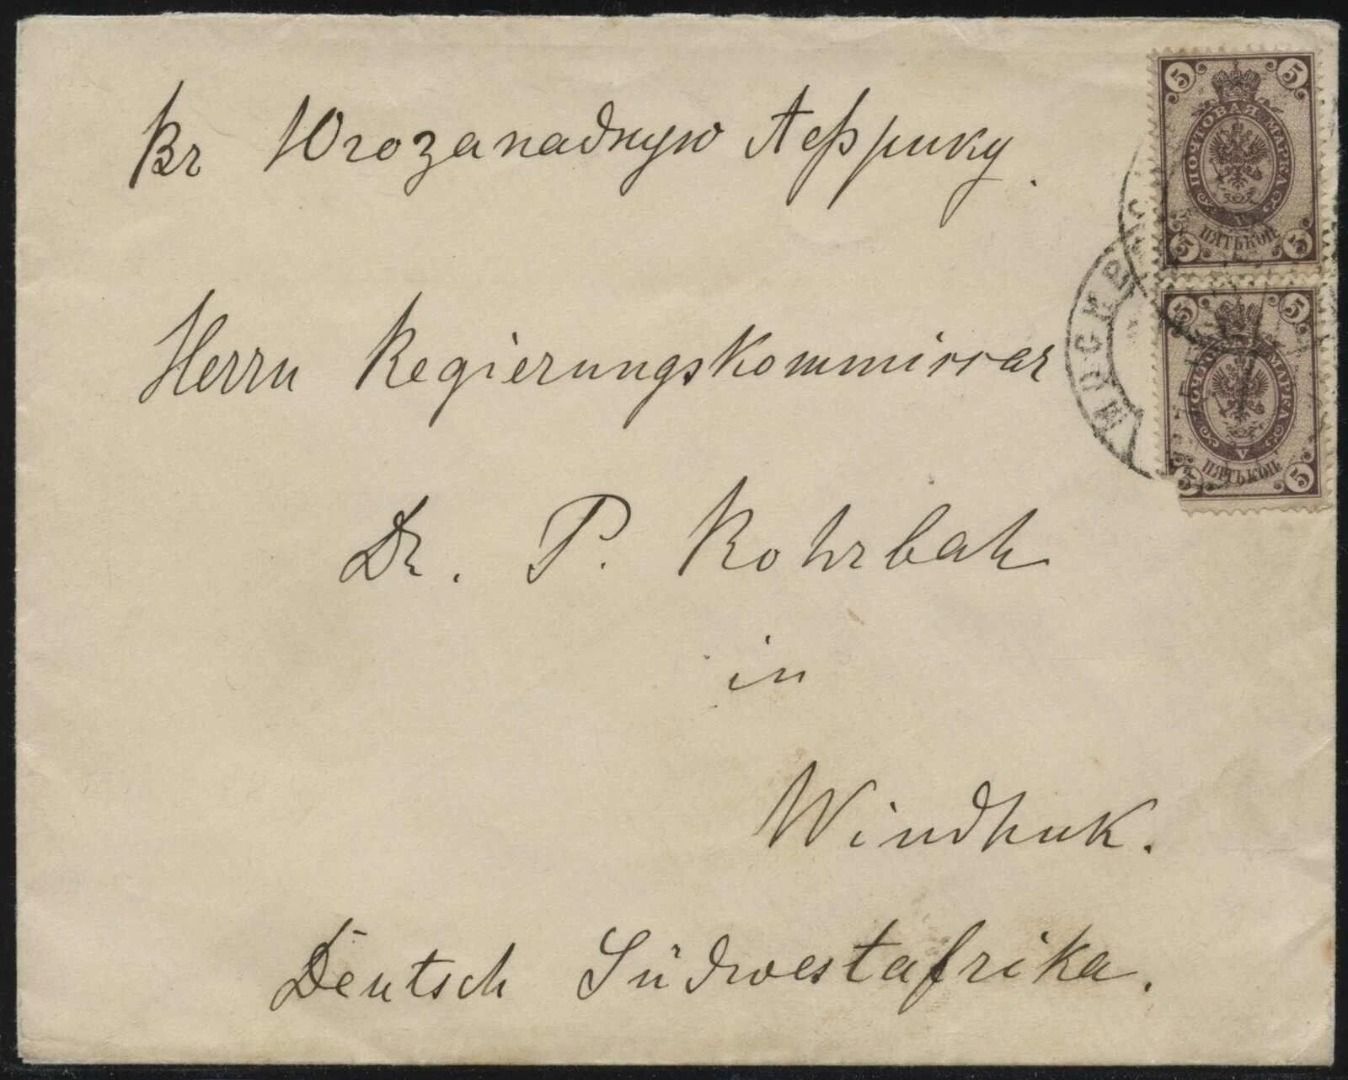 Въ Югозападную Африку.
5 5
ПОЧТОВАЯ МАРКА
V
ПЯТЬ КОП
5 5
МОСКВ
5 5
ПОЧТОВАЯ МАРКА
V
ПЯТЬ КОП
5 5
Herrn Regierungskommissar
Dr. P. Rohrbah
in
Windhuk.
Deutsch Südwestafrika.